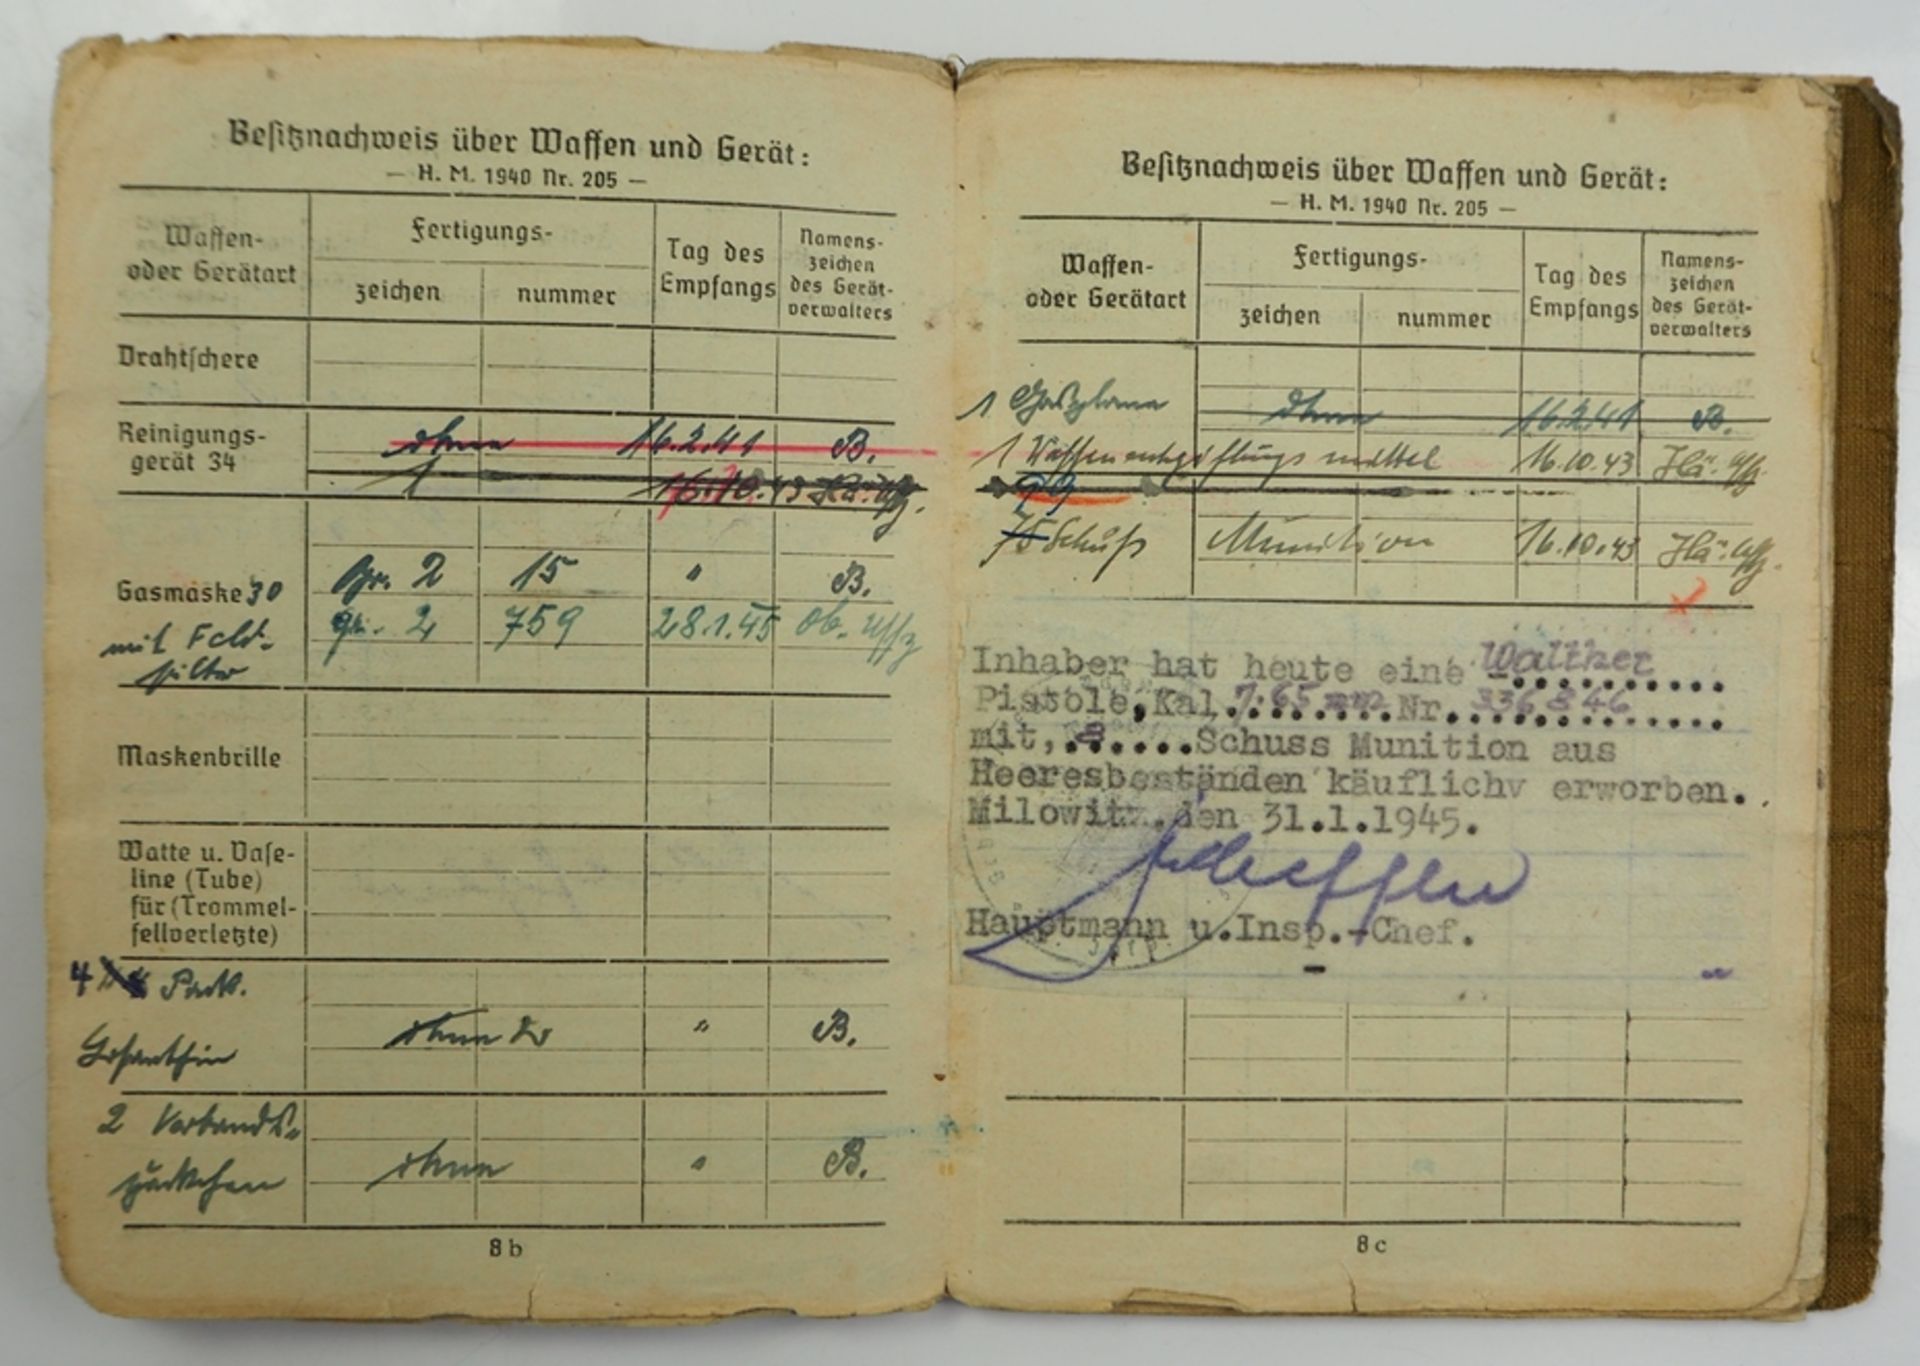 Besitznachweis über Waffen und Gerät:
— H. M. 1940 Nr. 205 —
Waffen-
oder Gerätart
Fertigungs-
zeichen
nummer
Tag des
Empfangs
Namens-
zeichen
des Gerät-
verwalters
Drahtschere
Reinigungs-
gerät 34
ohne 16.2.41 B.
1 16.10.43
Gasmaske 30
mit Feld-
filter
Gr. 2 15 " B.
gr. 2 759 28.1.45 Ob. Uffz
Maskenbrille
Watte u. Vase-
line (Tube)
für (Trommel-
fellverletzte)
4 Pack.
Losantin
ohne " B.
2 Verbands-
päckchen
ohne " B.
8 b
Besitznachweis über Waffen und Gerät:
— H. M. 1940 Nr. 205 —
Waffen-
oder Gerätart
Fertigungs-
zeichen
nummer
Tag des
Empfangs
Namens-
zeichen
des Gerät-
verwalters
1 Gasplane ohne 16.2.41 B.
1 Waffenentgiftungsmittel 16.10.43
75 Schuß Munition 16.10.43
Inhaber hat heute eine Walther
Pistole,Kal.7.65 mm Nr.336846
mit,.8.....Schuss Munition aus
Heeresbeständen käuflichv erworben.
Milowitz.den 31.1.1945.
Hauptmann u.Insp.-Chef.
8 c